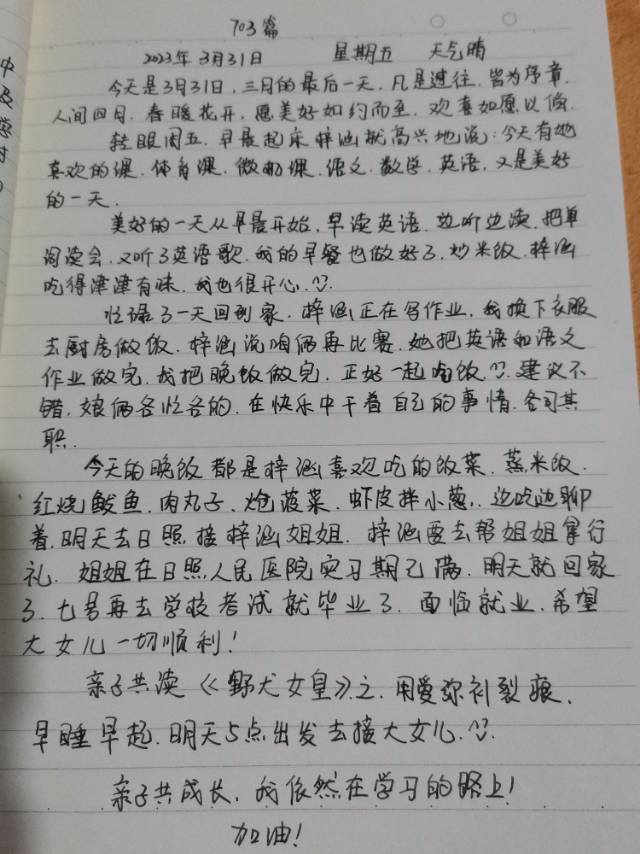 703篇
2023年3月31日 星期五 天气晴
今天是3月31日，三月的最后一天，凡是过往，皆为序章，
人间四月，春暖花开，愿美好如约而至，欢喜如愿以偿
转眼周五，早晨起床梓涵就高兴地说：今天有她
喜欢的课，体育课，微机课，语文，数学，英语，又是美好
的一天。
美好的一天从早晨开始，早读英语，边听边读，把单
词读会，又听了英语歌，我的早餐也做好了，炒米饭，梓涵
吃得津津有味，我也很开心，
忙碌了一天回到家，梓涵正在写作业，我换下衣服
去厨房做饭，梓涵说咱俩再比赛，她把英语和语文
作业做完，我把晚饭做完，正好一起吃饭 建议不
错，娘俩各忙各的，在快乐中干着自己的事情，各司其
职，
今天的晚饭都是梓涵喜欢吃的饭菜，蒸米饭，
红烧鲅鱼，肉丸子，炝菠菜，虾皮拌小葱，边吃边聊
着，明天去日照接梓涵姐姐，梓涵要去帮姐姐拿行
礼，姐姐在日照人民医院实习期已满，明天就回家
了，七号再去学校考试就毕业了，面临就业，希望
大女儿一切顺利！
亲子共读《野犬女皇》之，用爱弥补裂痕，
早睡早起，明天5点出发去接大女儿，
亲子共成长，我依然在学习的路上！
加油！